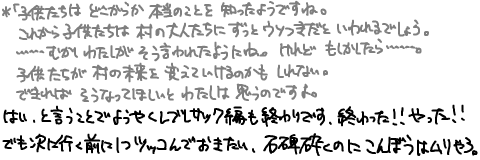 *「子供たちは どこからか 本当のことを 知ったようですね。
これから子供たちは 村の大人たちに ずっと ウソつきだと いわれるでしょう。
……むかし わたしが そう言われたようにね。 けれど もしかしたら……。
子供たちが 村の未来を 変えていけるのかも しれない。
できれば そうなってほしいと わたしは 思うのですよ。
はい、と言うことでようやくレブレサック編も終わりです、終わった!!やった!!
でも次に行く前に1つツッコんでおきたい、石碑砕くのに こんぼうはムリやろ。